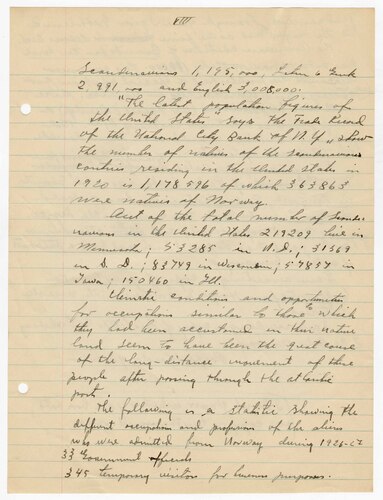 VIII
Scandinavians 1,195,000, Latin & Greek
2,991,000 and English 3,008,000.
"The latest population figures of
the United States" says the Trade Record
of the National City Bank of N.Y., "show
the number of natives of the scandinavian
contries residing in the United States in
1920 is 1,178,596 of which 363863
were natives of Norway.
Out of the total number of Scandi-
navians in the United States 219209 live in
Minnesota; 53285 in N.D.; 31369
in S.D.; 83749 in Wisconsin; 57857 in
Iowa; 150460 in Ill.
Climatic conditions and opportunities
for occupations similar to those which
they had been accustomed in their native
land seem to have been the great cause
of the long-distance movement of these
people after passing through the atlantic
ports.
The following is a statistic showing the
different occupation and profesions of the aliens
who were admitted from Norway during 1926-27
33 Government officials
345 temporary visitors for business purposes.